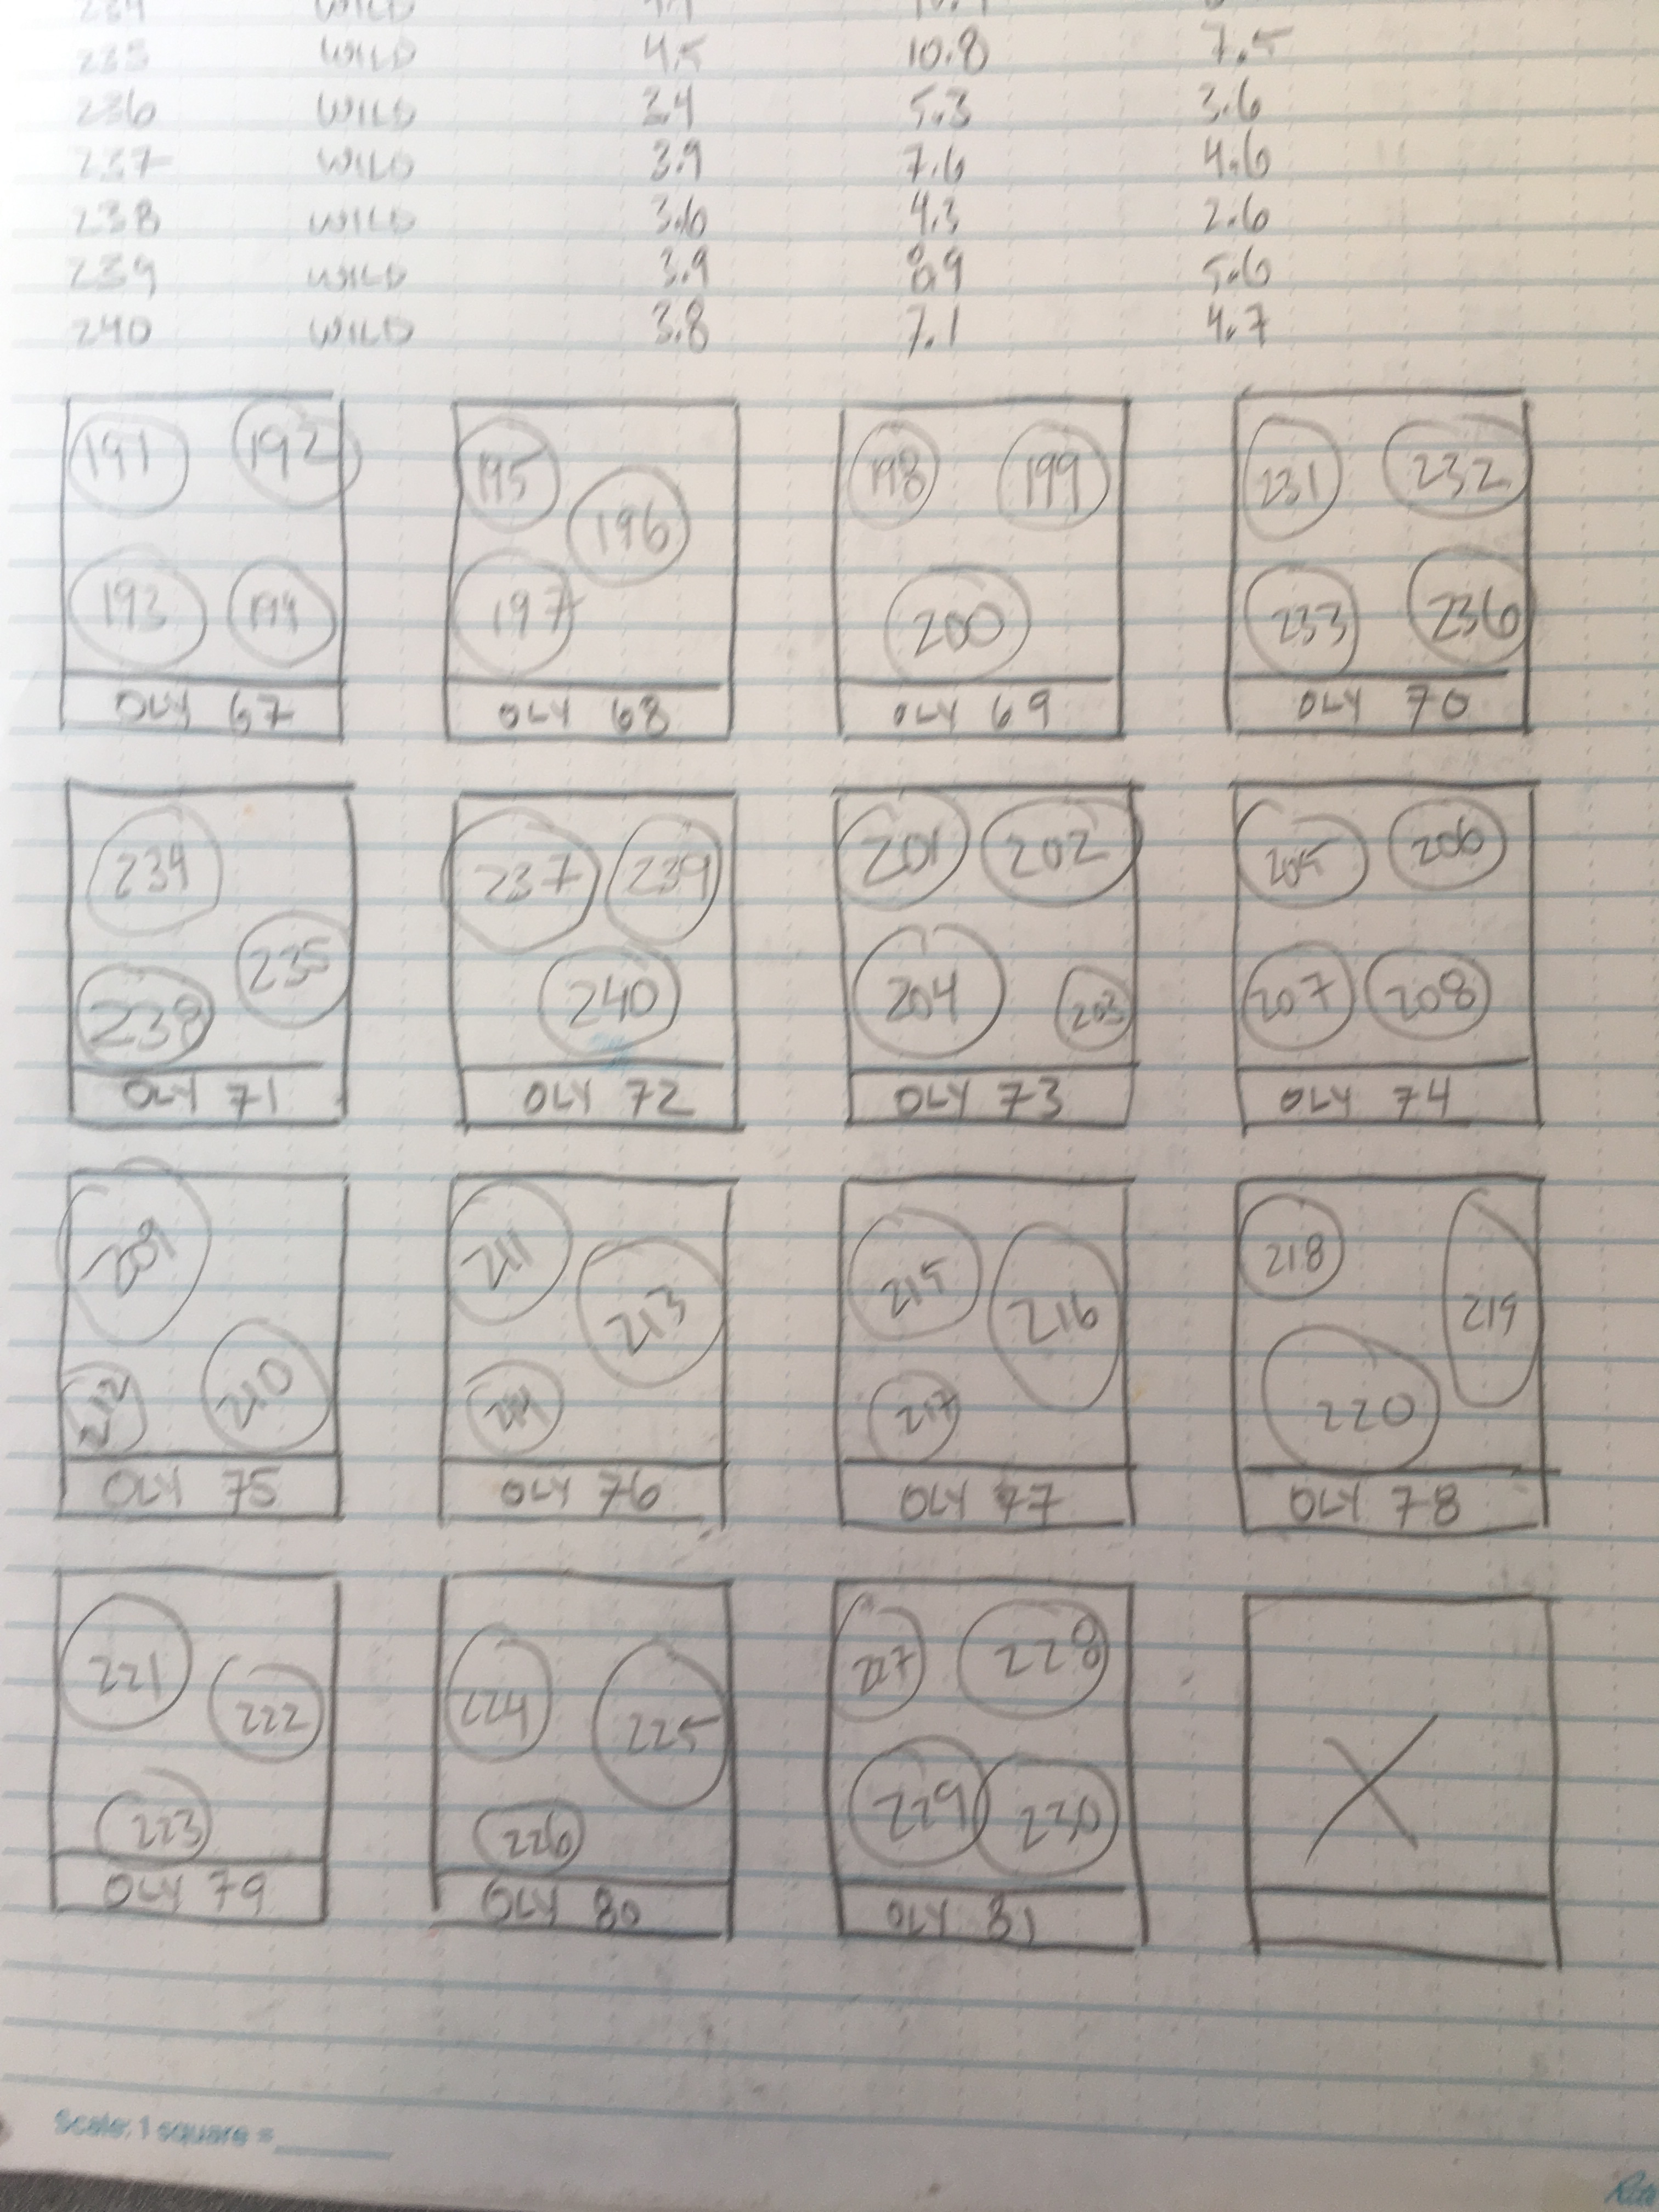 234 WILD
235 WILD 4.5 10.8 7.5
236 WILD 3.4 5.3 3.6
237 WILD 3.9 7.6 4.6
238 WILD 3.6 4.3 2.6
239 WILD 3.9 8.9 5.6
240 WILD 3.8 7.1 4.7
191 192
193 194
OLY 67
195
196
197
OLY 68
198 199
200
OLY 69
231 232
233 236
OLY 70
234
235
238
OLY 71
237 239
240
OLY 72
201 202
204 203
OLY 73
205 206
207 208
OLY 74
209
212 210
OLY 75
211
213
214
OLY 76
215 216
217
OLY 77
218
219
220
OLY 78
221
222
223
OLY 79
224 225
226
OLY 80
227 228
229 230
OLY 81
X
Scale: 1 square =